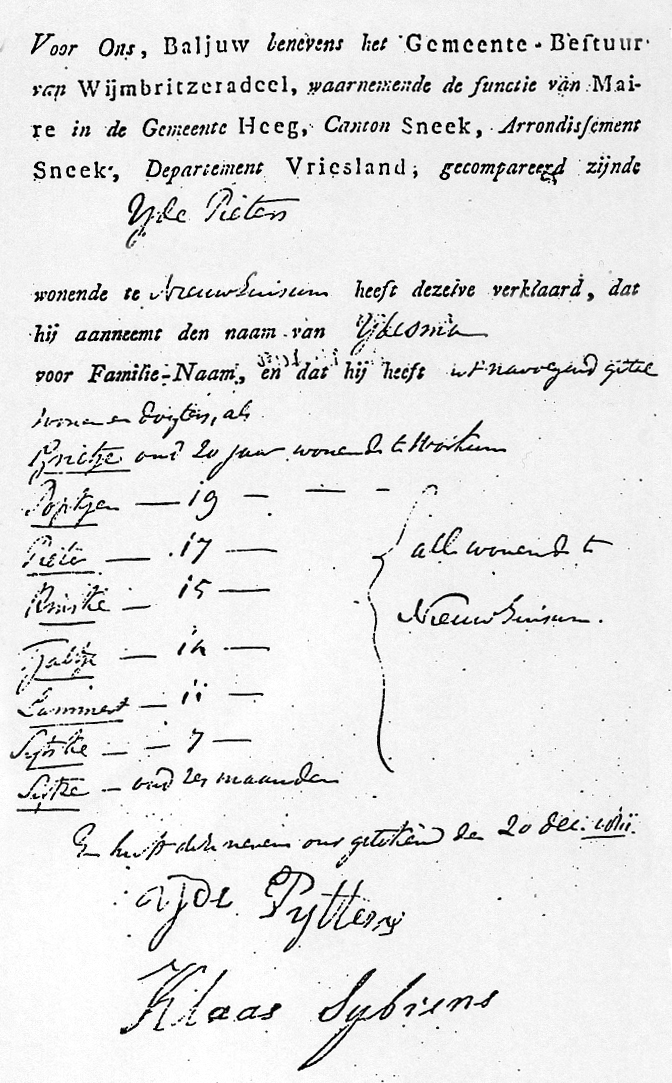 Voor Ons, Baljuw benevens het Gemeente-Bestuur
van Wijmbritzeradeel, waarnemende de functie van Mai-
re in de Gemeente Heeg, Canton Sneek, Arrondissement
Sneek, Departement Vriesland; gecompareerd zijnde
Yde Pieters
wonende te Nieuwhuisum heeft dezelve verklaard, dat
hij aanneemt den naam van Ydesma
voor Familie-Naam, en dat hij heeft het navolgend getal
zonen en dogters, als
oud 20 jaar wonende te Workum
Poptjen — 19 — — — —
Pieter — 17 —
Rinske — 15 —
— 14 —
Lammert — 11 —
Sytske — — 7 —
alle wonende te
Nieuwhuisum.
— oud maanden
En heeft deze nevens ons getekend den 20 dec.
Yde Pytters
Klaas Sybrens